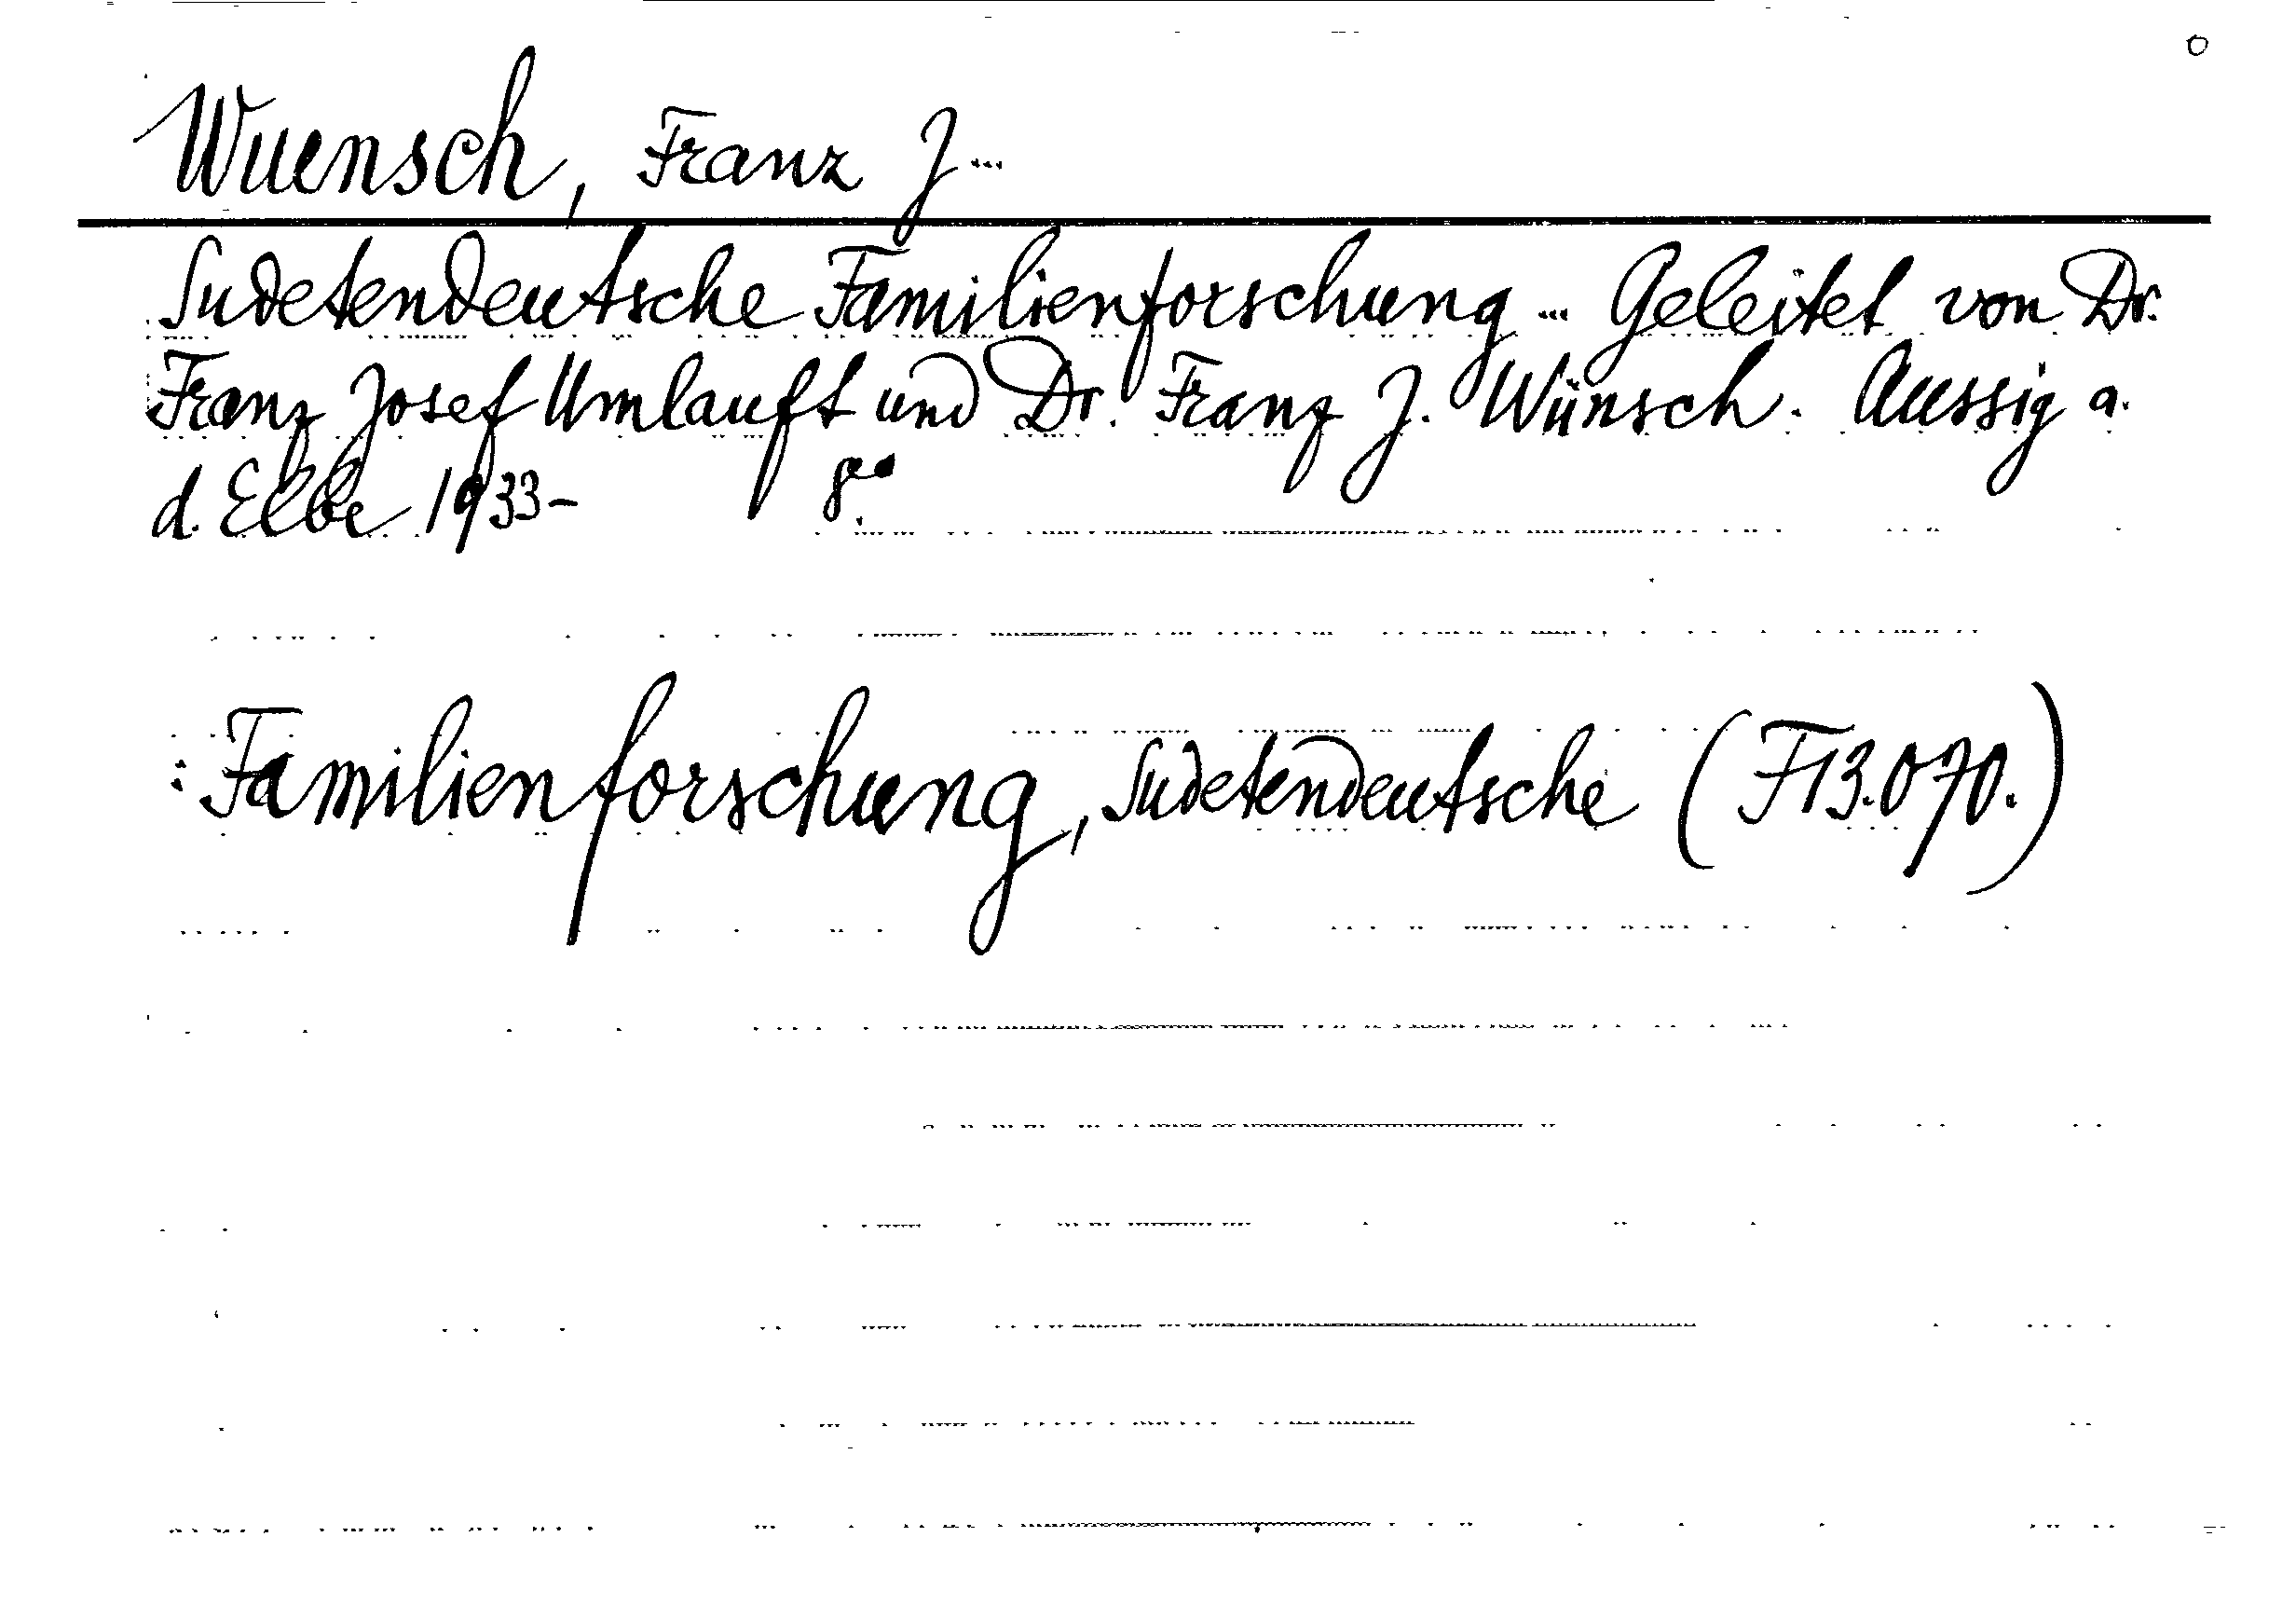 Wuensch, Franz J...
Sudetendeutsche Familienforschung ... Geleitet von Dr.
Franz Josef Umlauft und Dr. Franz J. Wünsch. Aussig a.
d. Elbe 1933- 8°.
: Familienforschung, Sudetendeutsche (F13.070.)